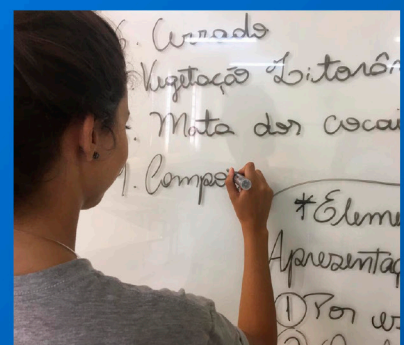 6. Cerrado
Vegetação Litorân
Mata dos cocai
9. Campo
*Eleme
Apresentaç
① Por es